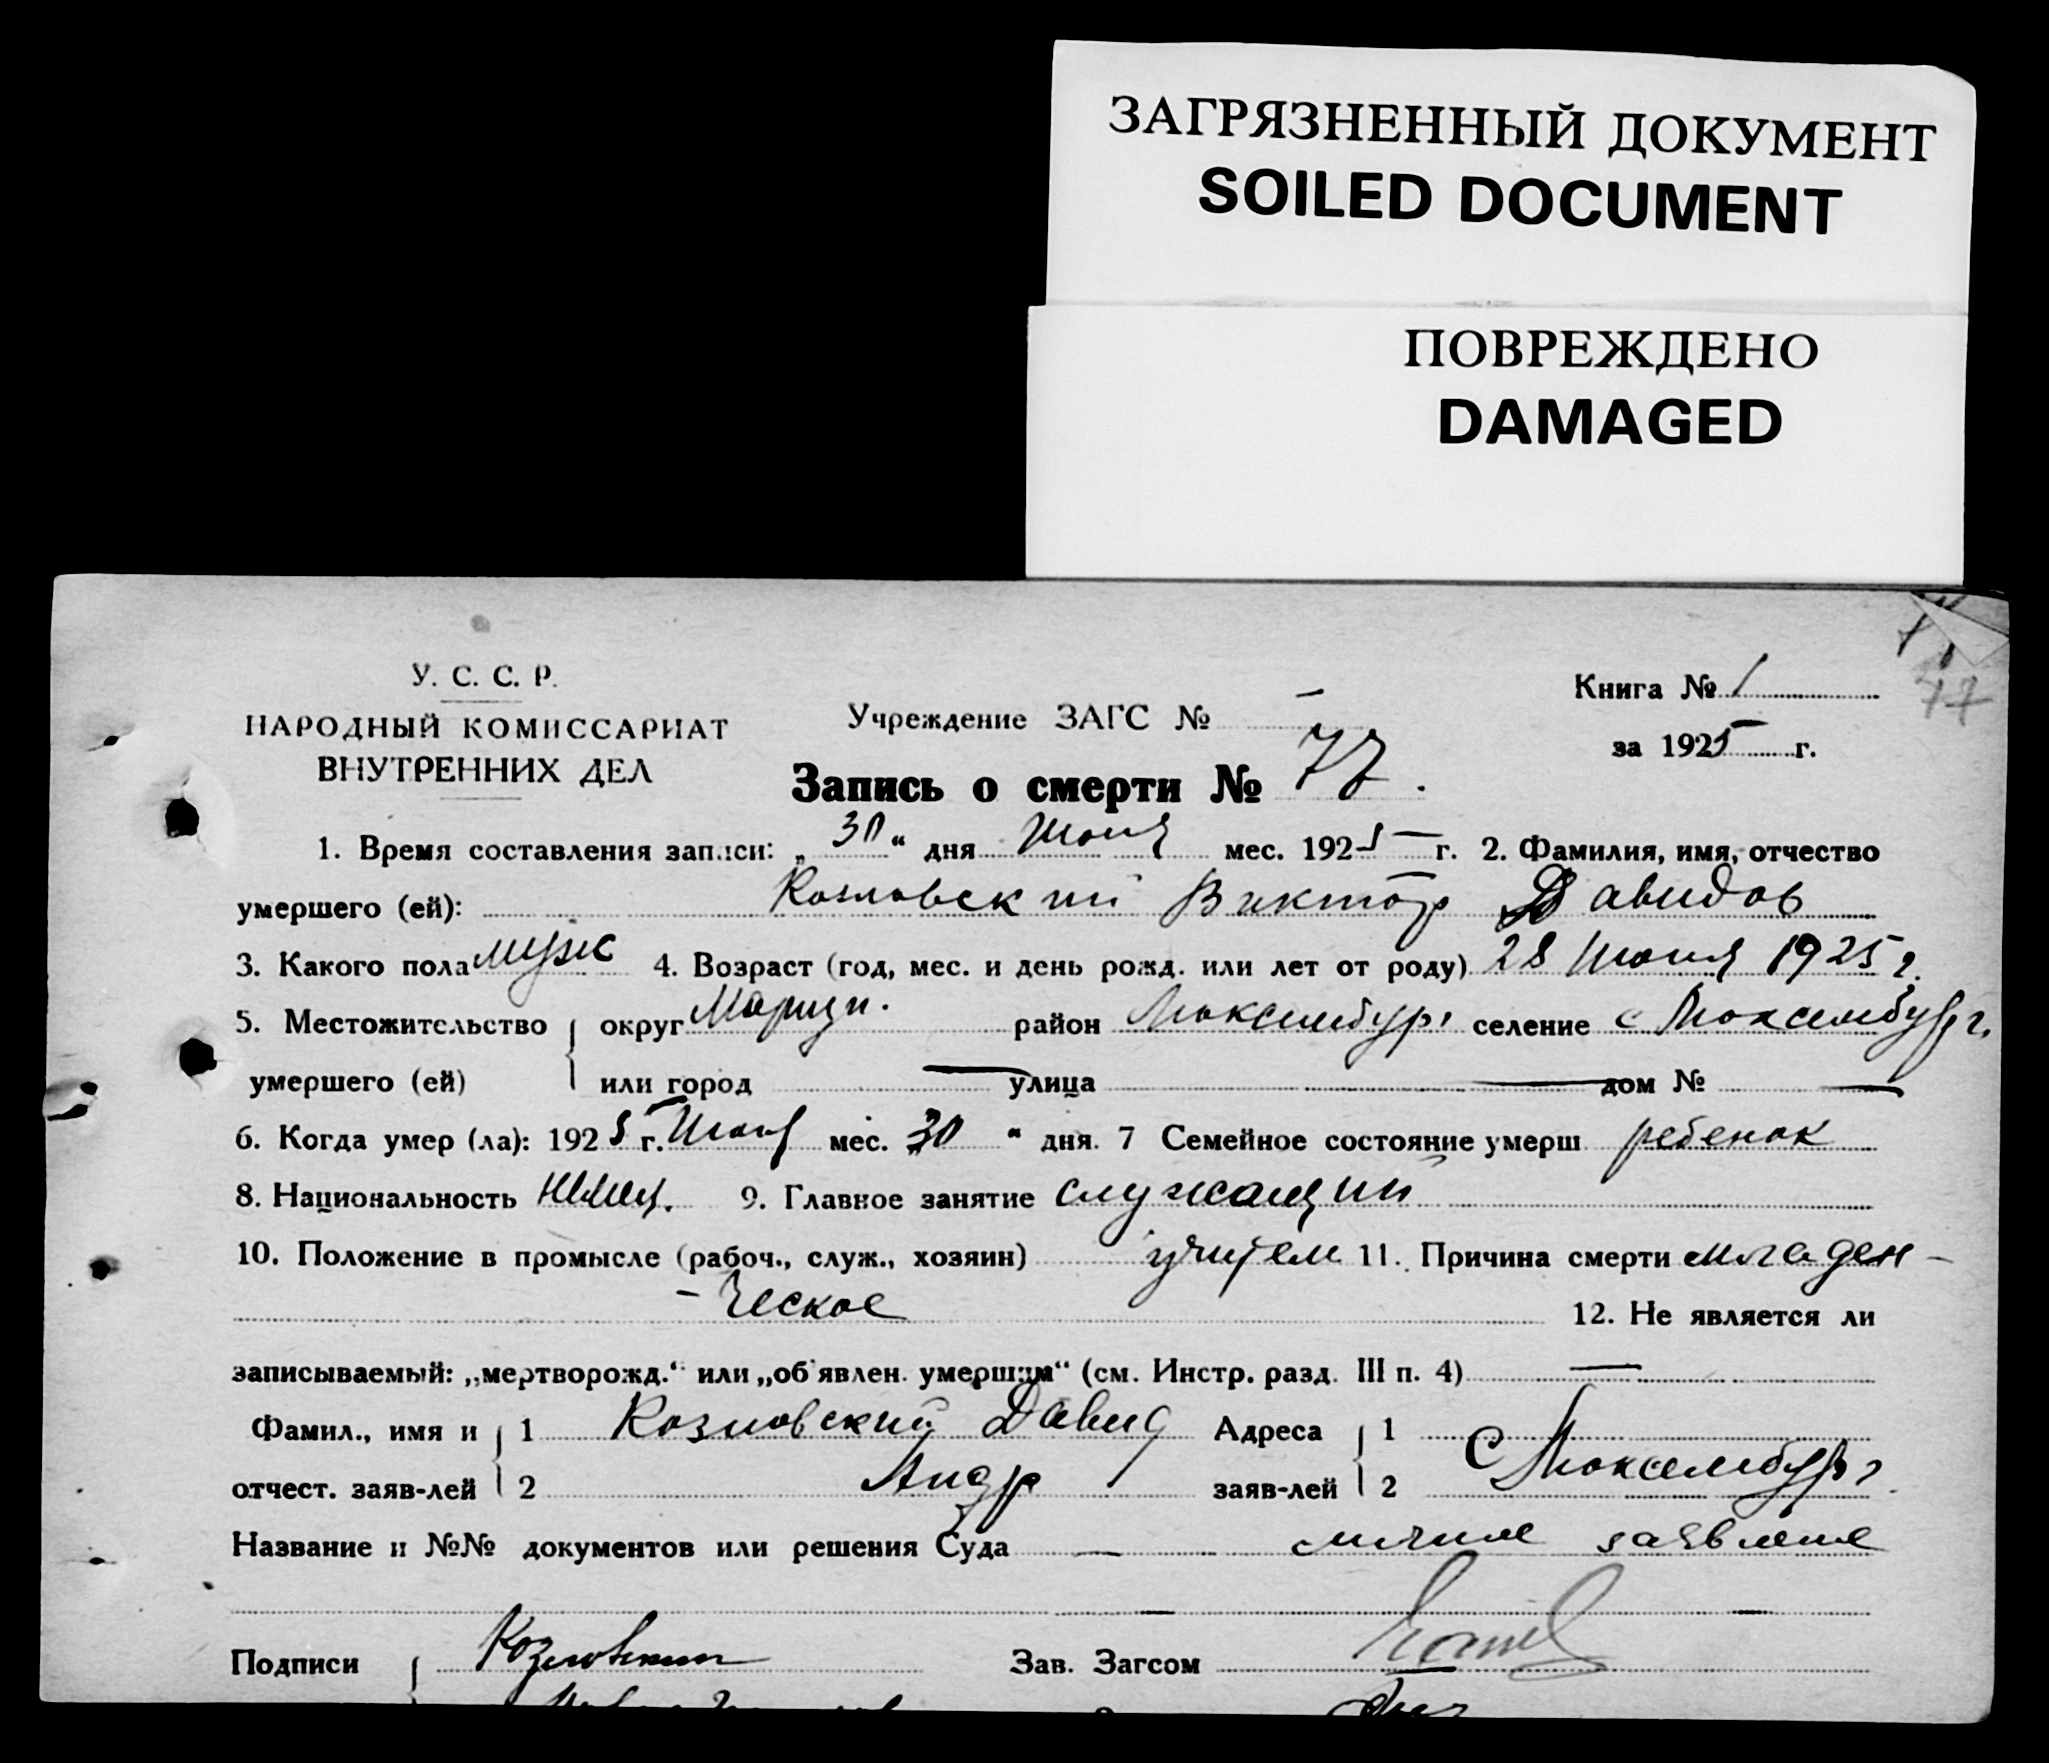 ЗАГРЯЗНЕННЫЙ ДОКУМЕНТ
SOILED DOCUMENT
ПОВРЕЖДЕНО
DAMAGED
77
У. С. С. Р.
НАРОДНЫЙ КОМИССАРИАТ
ВНУТРЕННИХ ДЕЛ
Учреждение ЗАГС № —
Книга № 1
за 1925 г.
Запись о смерти № 77.
1. Время составления записи: „30“ дня Июня мес. 1925 г. 2. Фамилия, имя, отчество
умершего (ей): Козловский Виктор Давидов
3. Какого пола муж 4. Возраст (год, мес. и день рожд. или лет от роду) 28 Июня 1925 г.
5. Местожительство округ Мариуп. район Люксембург селение с Люксембург.
умершего (ей) или город — улица — дом № —
6. Когда умер (ла): 1925 г. Июня мес. „30“ дня. 7 Семейное состояние умерш ребенок
8. Национальность немец. 9. Главное занятие служащий
10. Положение в промысле (рабоч., служ., хозяин) учител 11. Причина смерти младен-
-ческое 12. Не является ли
записываемый: „мертворожд.“ или „об'явлен. умершим“ (см. Инстр. разд. III п. 4) —
Фамил., имя и 1 Козловский Давид Адреса 1
отчест. заяв-лей 2 Андр заяв-лей 2 С Люксембург
Название и №№ документов или решения Суда — личное заявление
Подписи Козловский Зав. Загсом